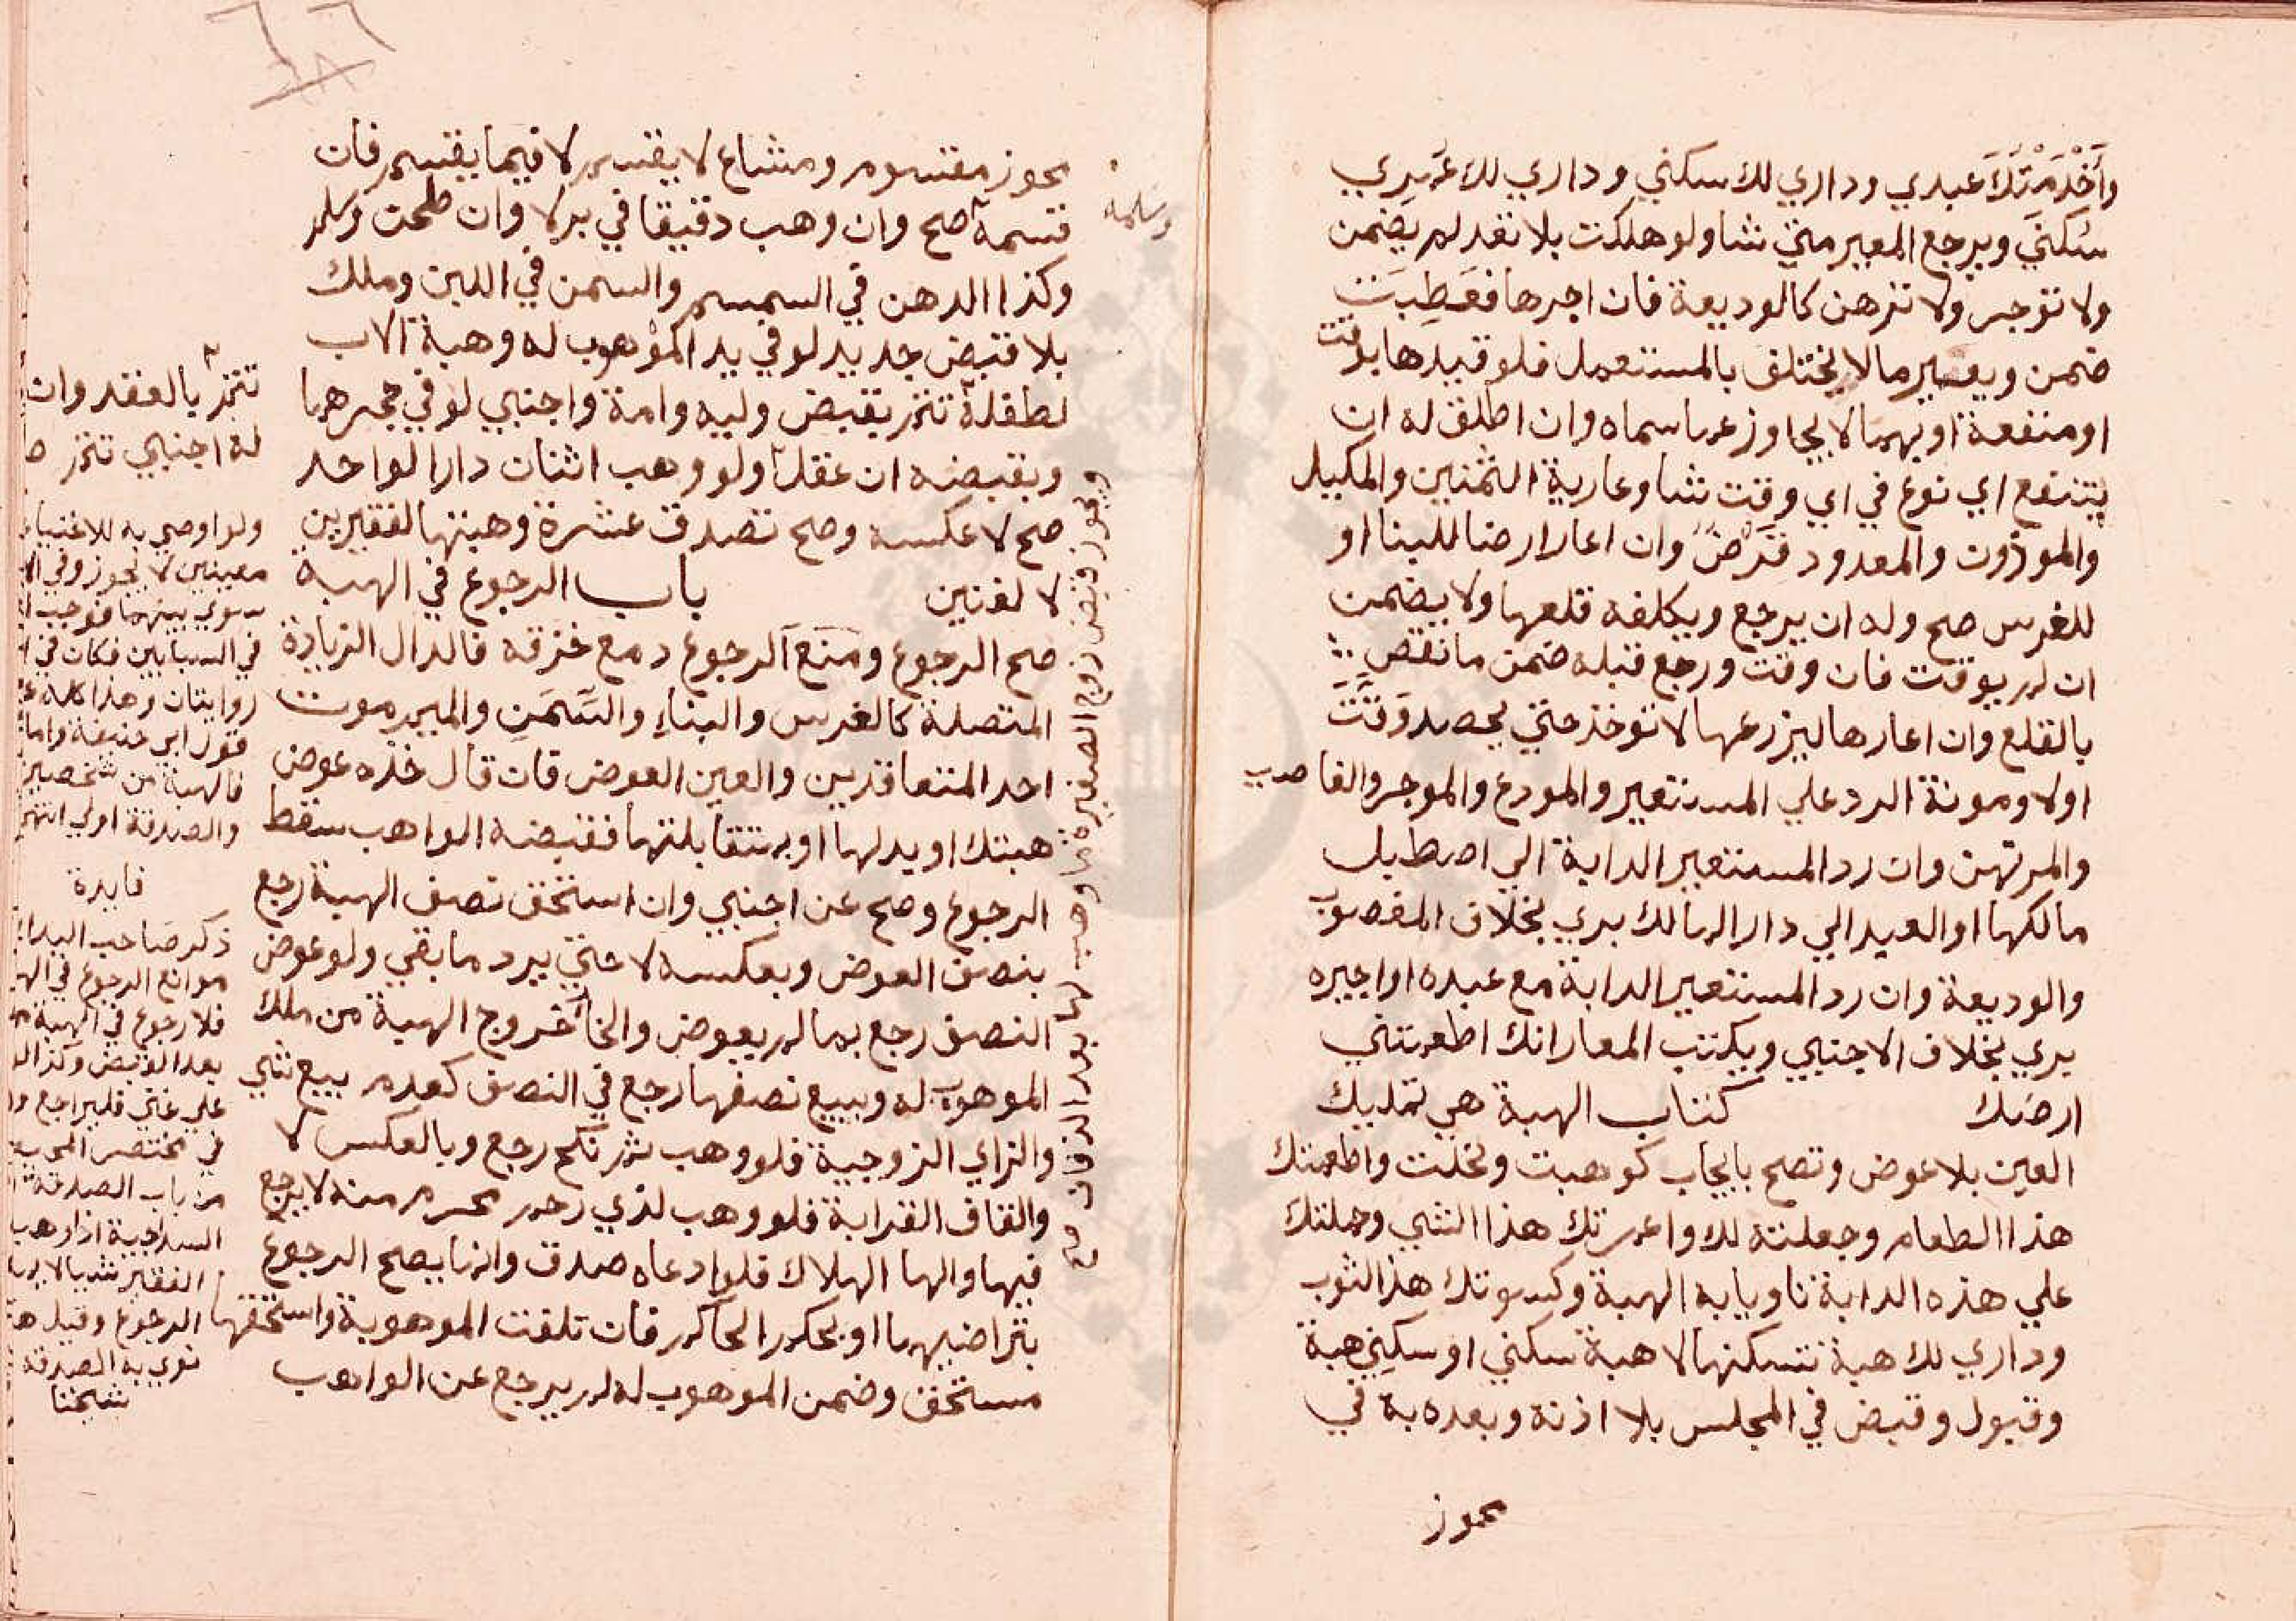 وأَخْدَمْتُكَ عبدي وداري لك سكني وداري لك عُمري
سُكنَي ويرجع المعير متي شا ولو هلكت بلا تعد لم يضمن
ولا توجر ولا ترهن كالوديعة فان اجرها فعَطِبَت
ضمن ويعير مالا يختلف بالمستعمل فلو قيدها بوقت
او منفعة او بهما لا يجاوز عما سماه وان اطلق له ان
ينتفع اي نوع في اي وقت شا وعارية الثمنين والمكيل
والموزون والمعدود قَرْضٌ وان اعار ارضا للبنا او
للغرس صح وله ان يرجع ويكلفه قلعهما ولا يضمن
ان لم يوقت فان وقت ورجع قبله ضمن ما نقص
بالقلع وان اعارها ليزرعها لا توخذ حتي يحصد وَقَّتَ
اولا ومونة الرد علي المستعير والمودع والموجر والغاصب
والمرتهن وان رد المستعير الدابة الي اصطبل
مالكها او العبد الي دار المالك بري بخلاف المغصوب
والوديعة وان رد المستعير الدابة مع عبده او اجيره
بري بخلاف الاجنبي ويكتب المعار انك اطعمتني
ارضك كتاب الهبة هي تمليك
العين بلا عوض وتصح بايجاب كوهبت ونحلت واطعمتك
هذا الطعام وجعلته لك واعمرتك هذا الشي وحملتك
علي هذه الدابة ناويا به الهبة وكسوتك هذا الثوب
وداري لك هبة تسكنها لا هبة سكني او سكني هبة
وقبول وقبض في المجلس بلا اذنه وبعده به في
محوز
محوز مقسوم ومشاع لا يقسم لا فيما يقسم فان
قسمه صح وان وهب دقيقا في بر لا وان طحن وسلم
وسلمه
وكذا الدهن في السمسم والسمن في اللبن وملك
بلا قبض جديد لو في يد الموهوب له وهبة الاب
لطفله تتم بقبض وليه وامه واجنبي لو في حجرهما
وبقبضه ان عقل ولو وهب اثنان دارا لواحد
صح لا عكسه وصح تصدق عشرة وهبتها لفقيرين
لا لغنيين باب الرجوع في الهبة
صح الرجوع ومنع الرجوع دمع خزقه فالدال الزيادة
المتصلة كالغرس والبناء والسَّمَن والميم موت
احد المتعاقدين والعين العوض فان قال خذه عوض
هبتك او بدلها او بمقابلتها فقبضه الواهب سقط
الرجوع وصح عن اجنبي وان استحق نصف الهبة رجع
بنصف العوض وبعكسه لا حتي يرد ما بقي ولو عوض
النصف رجع بما لم يعوض والخا خروج الهبة من ملك
الموهوب له وببيع نصفها رجع في النصف كعدم بيع شي
والزاي الزوجية فلو وهب ثم نكح رجع وبالعكس لا
والقاف القرابة فلو وهب لذي رحم محرم منه لا يرجع
فيها والها الهلاك فلو ادعاه صدق وانما يصح الرجوع
بتراضيهما او بحكم الحاكم فان تلفت الموهوبة واستحقها
مستحق وضمن الموهوب له لم يرجع عن الواهب
ويجوز قبض زوج الصغيرة ما وهب لها بعد الزفاف صح
تتم بالعقد وان
له اجنبي تتم
ولو اوصي به للاغنياء
معينين لا يجوز وفي
سوي بينهما فوجب
في السبابين فكان في
روايتان وهذا كله
قول ابي حنيفة واما
فالهبة من شخصين
والصدقة اولي انتهي
فايدة
ذكر صاحب البدائع
موانع الرجوع في
فلا رجوع في الهبة
بعد القبض وكذا
علي غني فليراجع
في مختصر المحيط
من باب الصدقة
السراجية اذا وهب
الفقير شيا لا
الرجوع وقيل
نوي به الصدقة
شيخنا